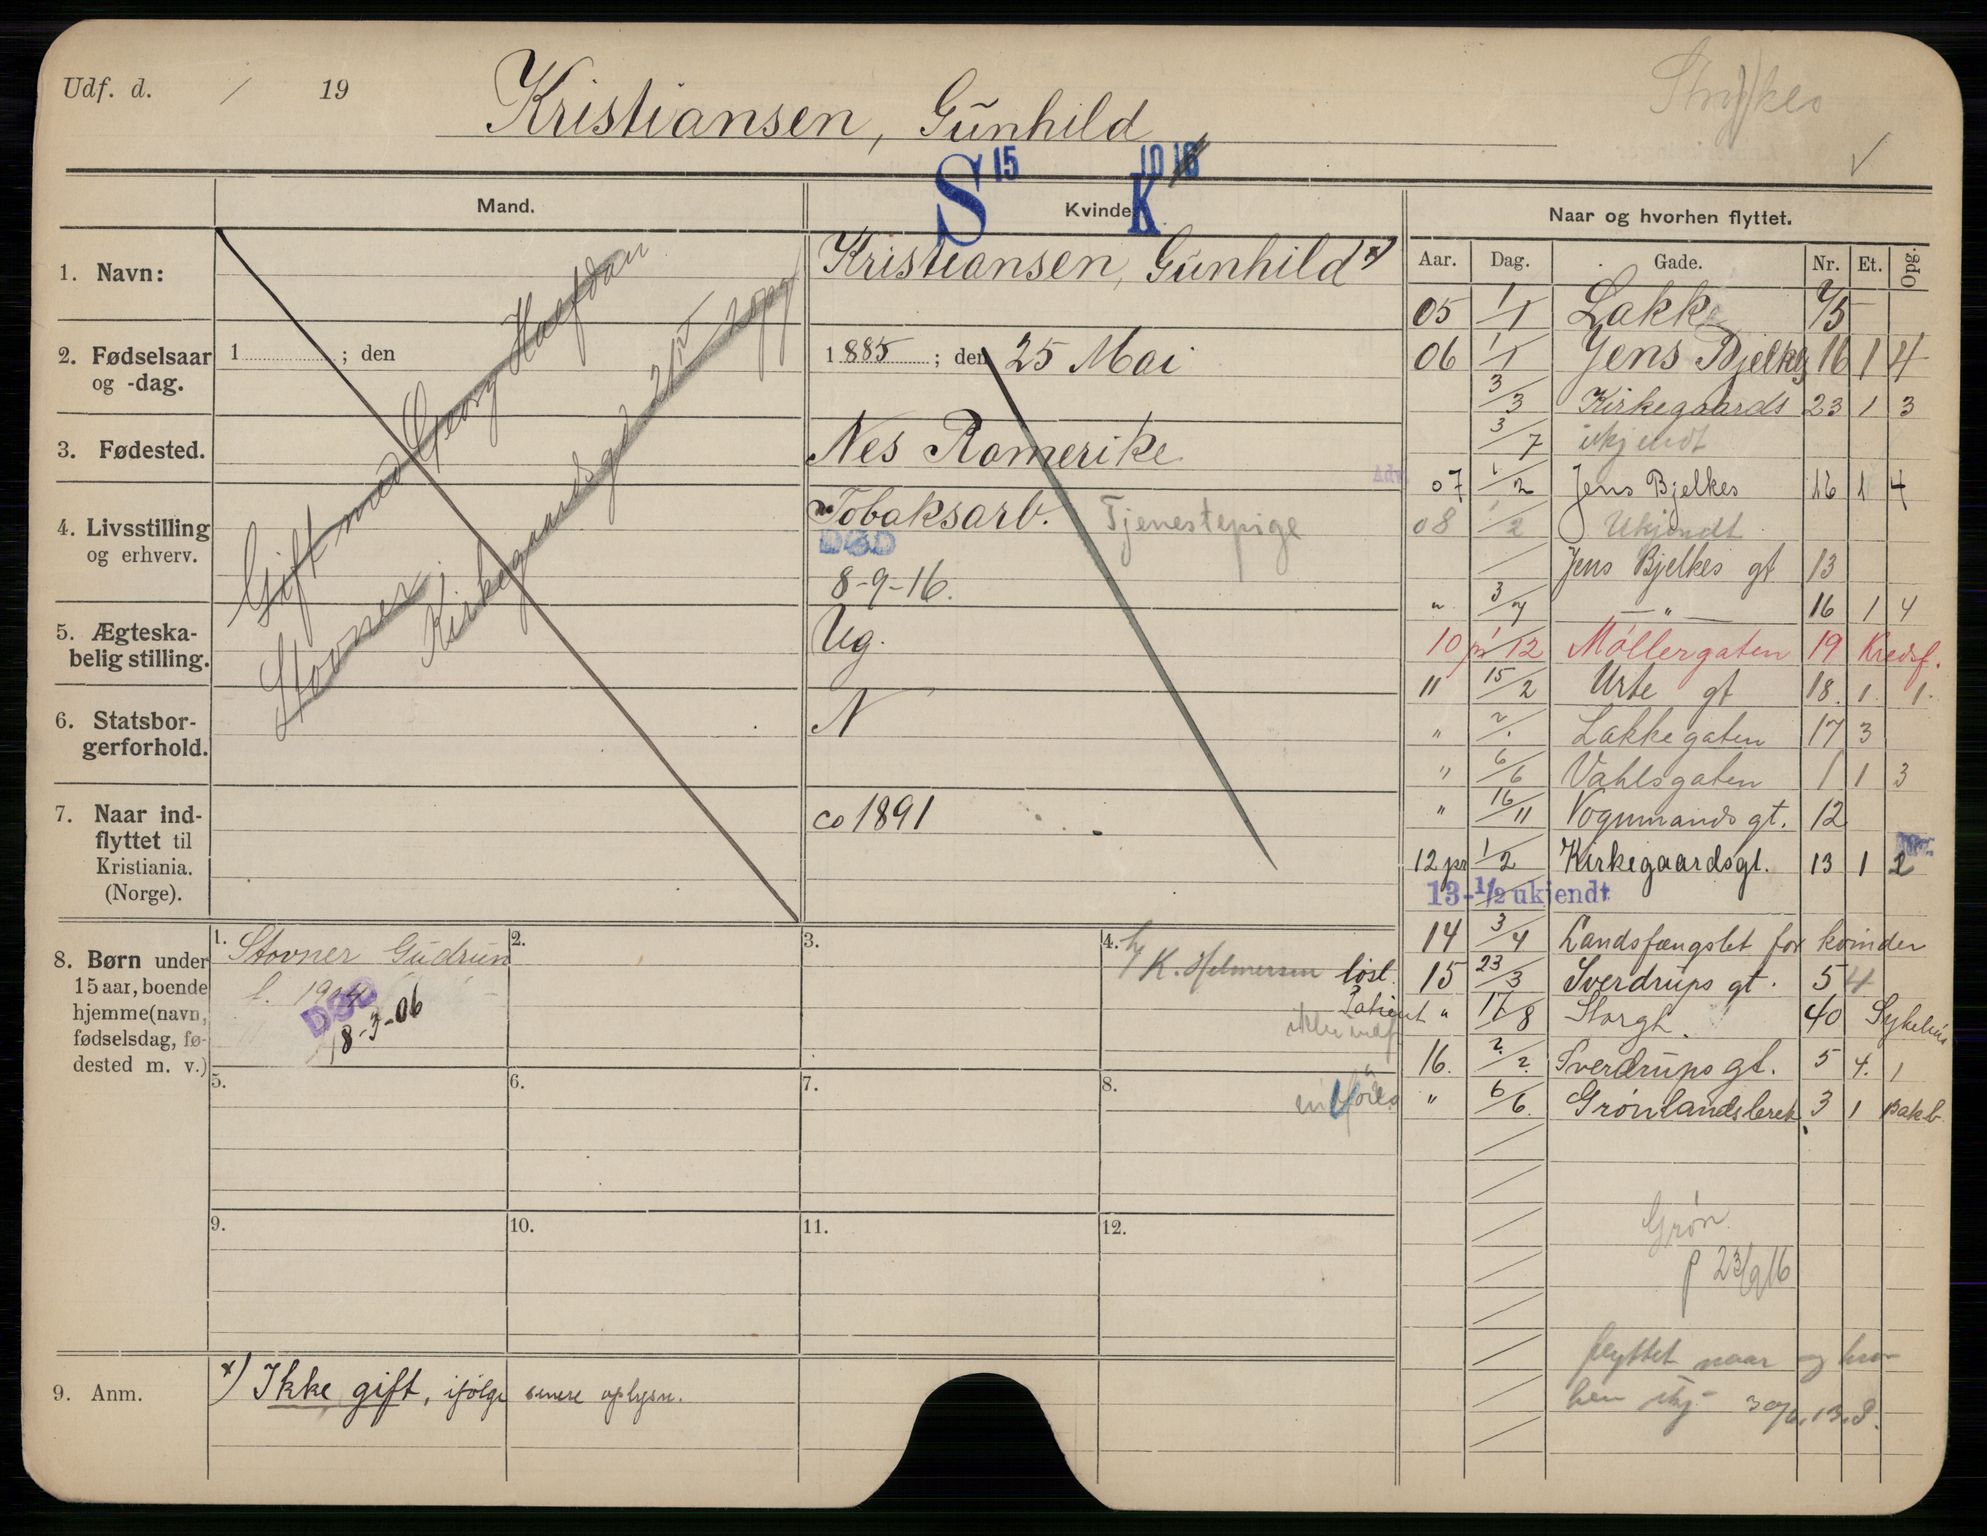 Udf. d. / 19
Kristiansen, Gunhild
Strykes
S 15 K 10 16
Mand.
Kvinde
Naar og hvorhen flyttet.
Aar. Dag. Gade. Nr. Et. Opg.
1. Navn:
Kristiansen, Gunhild x)
2. Fødselsaar og -dag.
1 ; den
1885 ; den 25 Mai
3. Fødested.
Nes Romerike
4. Livsstilling og erhverv.
Tobaksarb. Tjenestepige
DØD
8-9-16.
5. Ægteska-
belig stilling.
Ug.
6. Statsbor-
gerforhold.
N
7. Naar ind-
flyttet til
Kristiania.
(Norge).
co 1891
Gift med Georg Haafdan
Stovner
Kirkegaardsgd 21 I 2 opg
05 1/1 Lakke 7/5
06 1/1 Jens Bjelkes 16 1 4
3/3 Kirkegaards 23 1 3
3/7 ukjendt
07 1/2 Jens Bjelkes 16 1 4
08 1/2 Ukjendt
Jens Bjelkes gt 13
" 3/7 — " — 16 1 4
10 pr 1/12 Møllergaten 19 Kredsf.
11 15/2 Urte gt 18. 1. 1.
" 2/. Lakkegaten 17 3
" 6/6 Vahlsgaten 1 1 3
" 16/11 Vognmands gt. 12
12 pr 1/2 Kirkegaardsgt. 13 1 2
13-1/2 ukjendt
14 3/4 Landsfængslet for kvinder
15 23/3 Sverdrups gt. 5 4
" 17/8 Storgt. 40 Sykehus
16. 2/2. Sverdrups gt. 5 4. 1
" 6/6. Grønlandsleret 3 1 Bakb.
Grøn.
p 23/9 16
flyttet naar og hvor
hen ukj 13. S.
8. Børn under
15 aar, boende
hjemme (navn,
fødselsdag, fø-
dested m. v.)
1. Stovner Gudrun
f. 1904
DØD
18-3-06
2.
3.
4. K. Helmersen løsl.
Patient
5.
6.
7.
8.
9.
10.
11.
12.
9. Anm.
x) Ikke gift, ifølge senere oplysn.